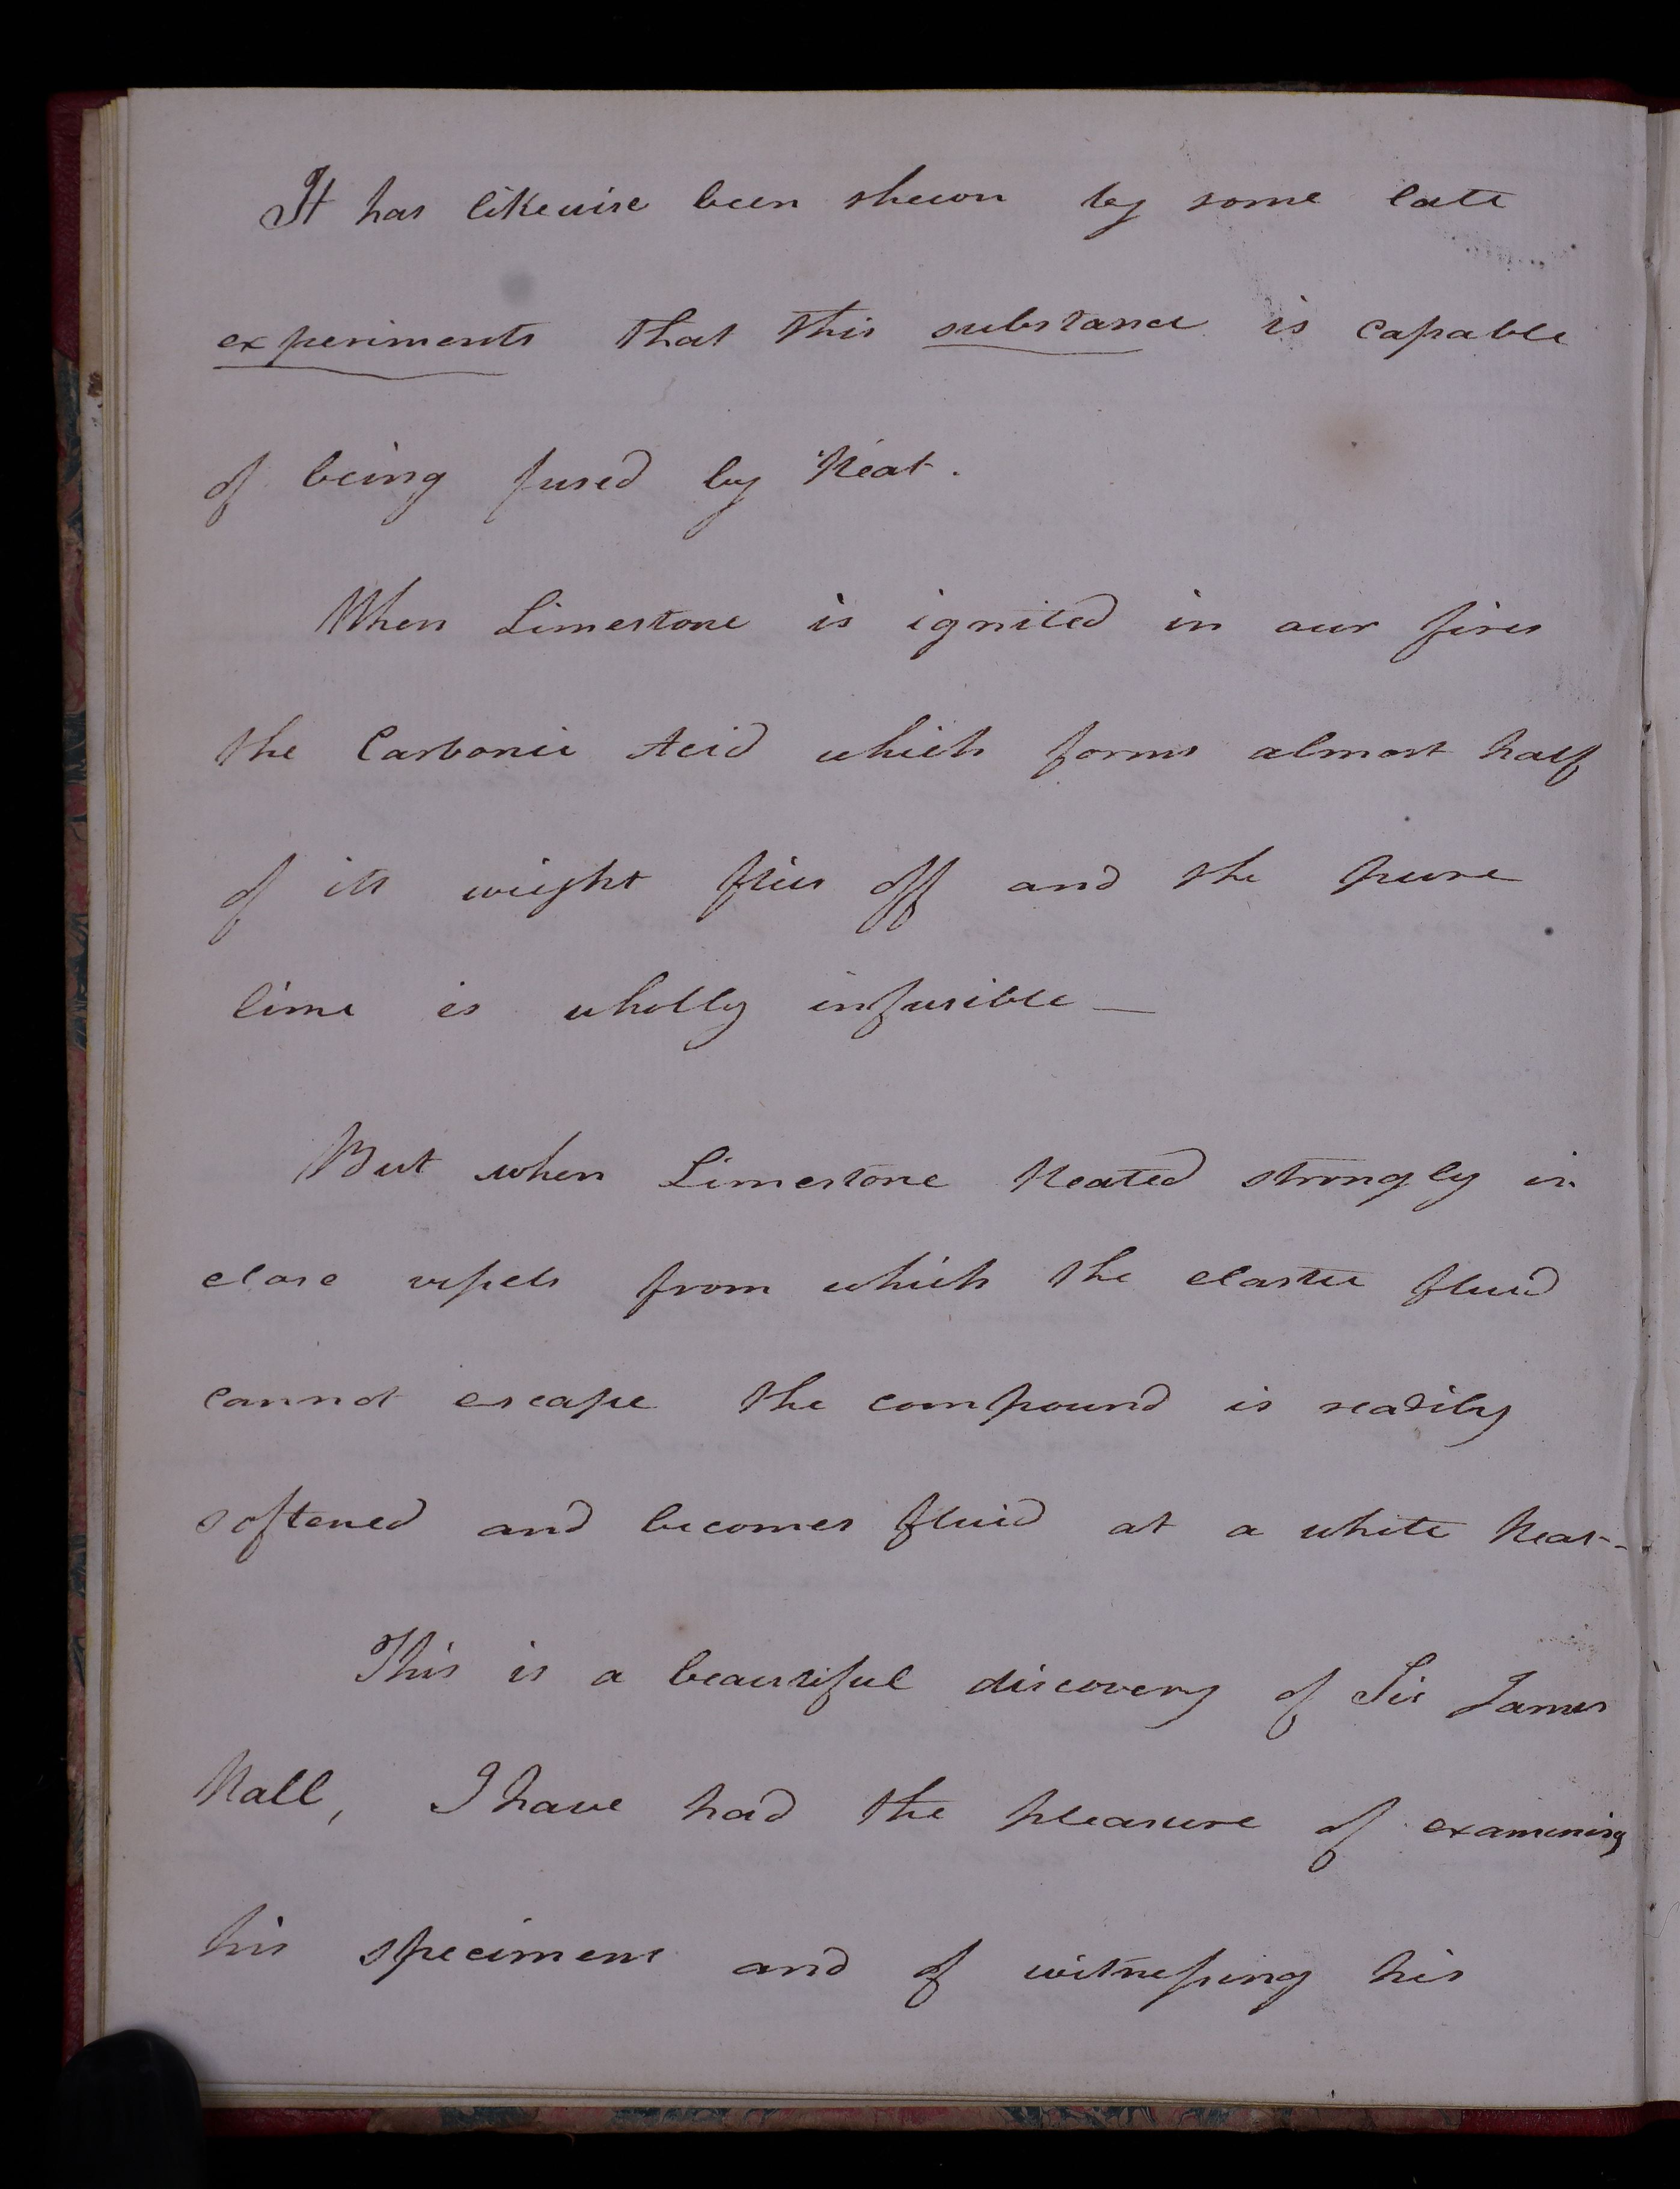 It has likewise been shewn by some late
experiments that this substance is capable
of being fused by Heat.
When Limestone is ignited in our fires
the Carbonic Acid which forms almost half
of its weight flies off and the pure
lime is wholly infusible —
But when Limestone Heated strongly in
close vessels from which the elastic fluid
cannot escape the compound is readily
softened and becomes fluid at a white Heat -
This is a beautiful discovery of Sir James
Hall, I have had the pleasure of examining
his specimens and of witnessing his